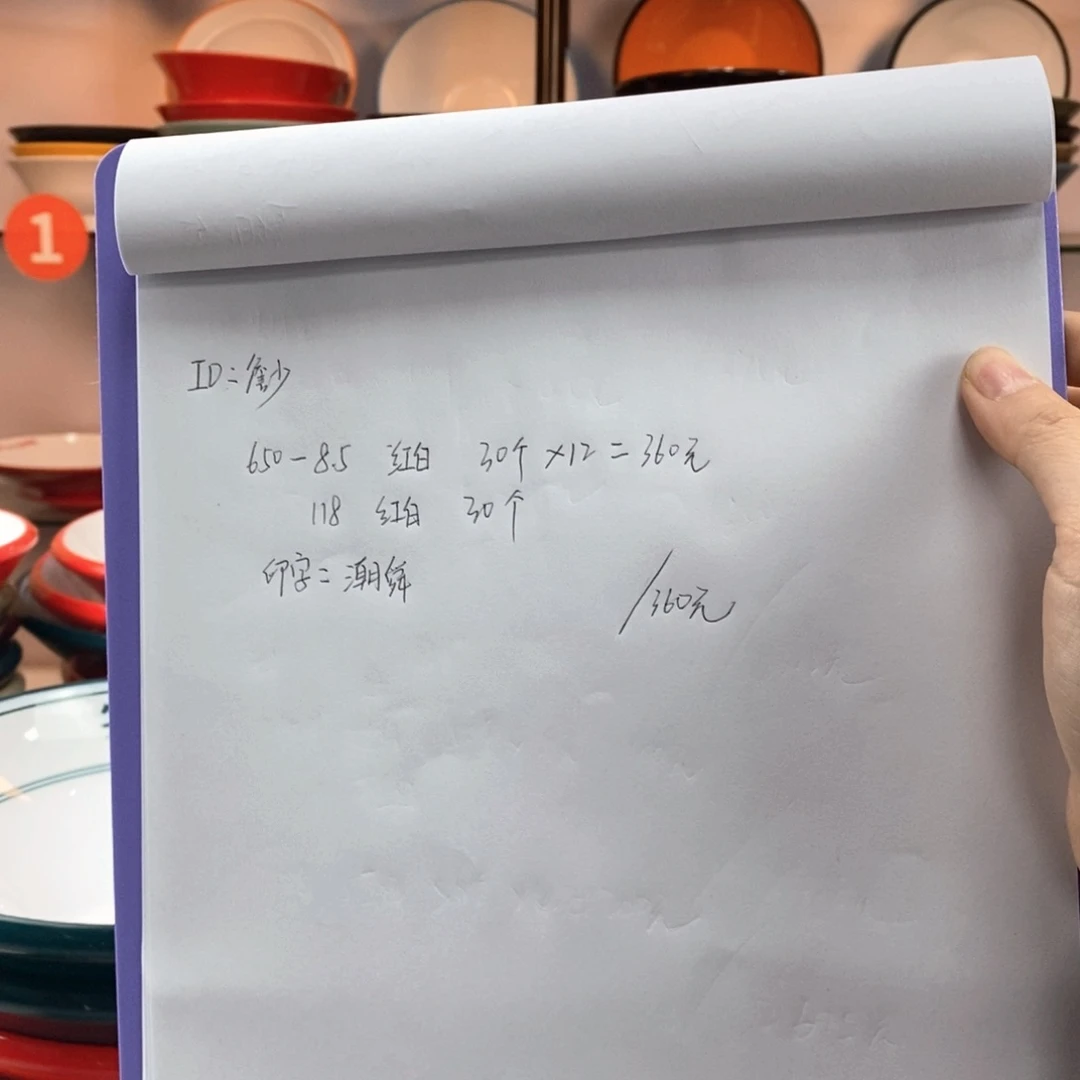 1
ID：詹少
650-8.5 红白 30个 ×12 = 360元
118 红白 30个
印字：潮
/360元